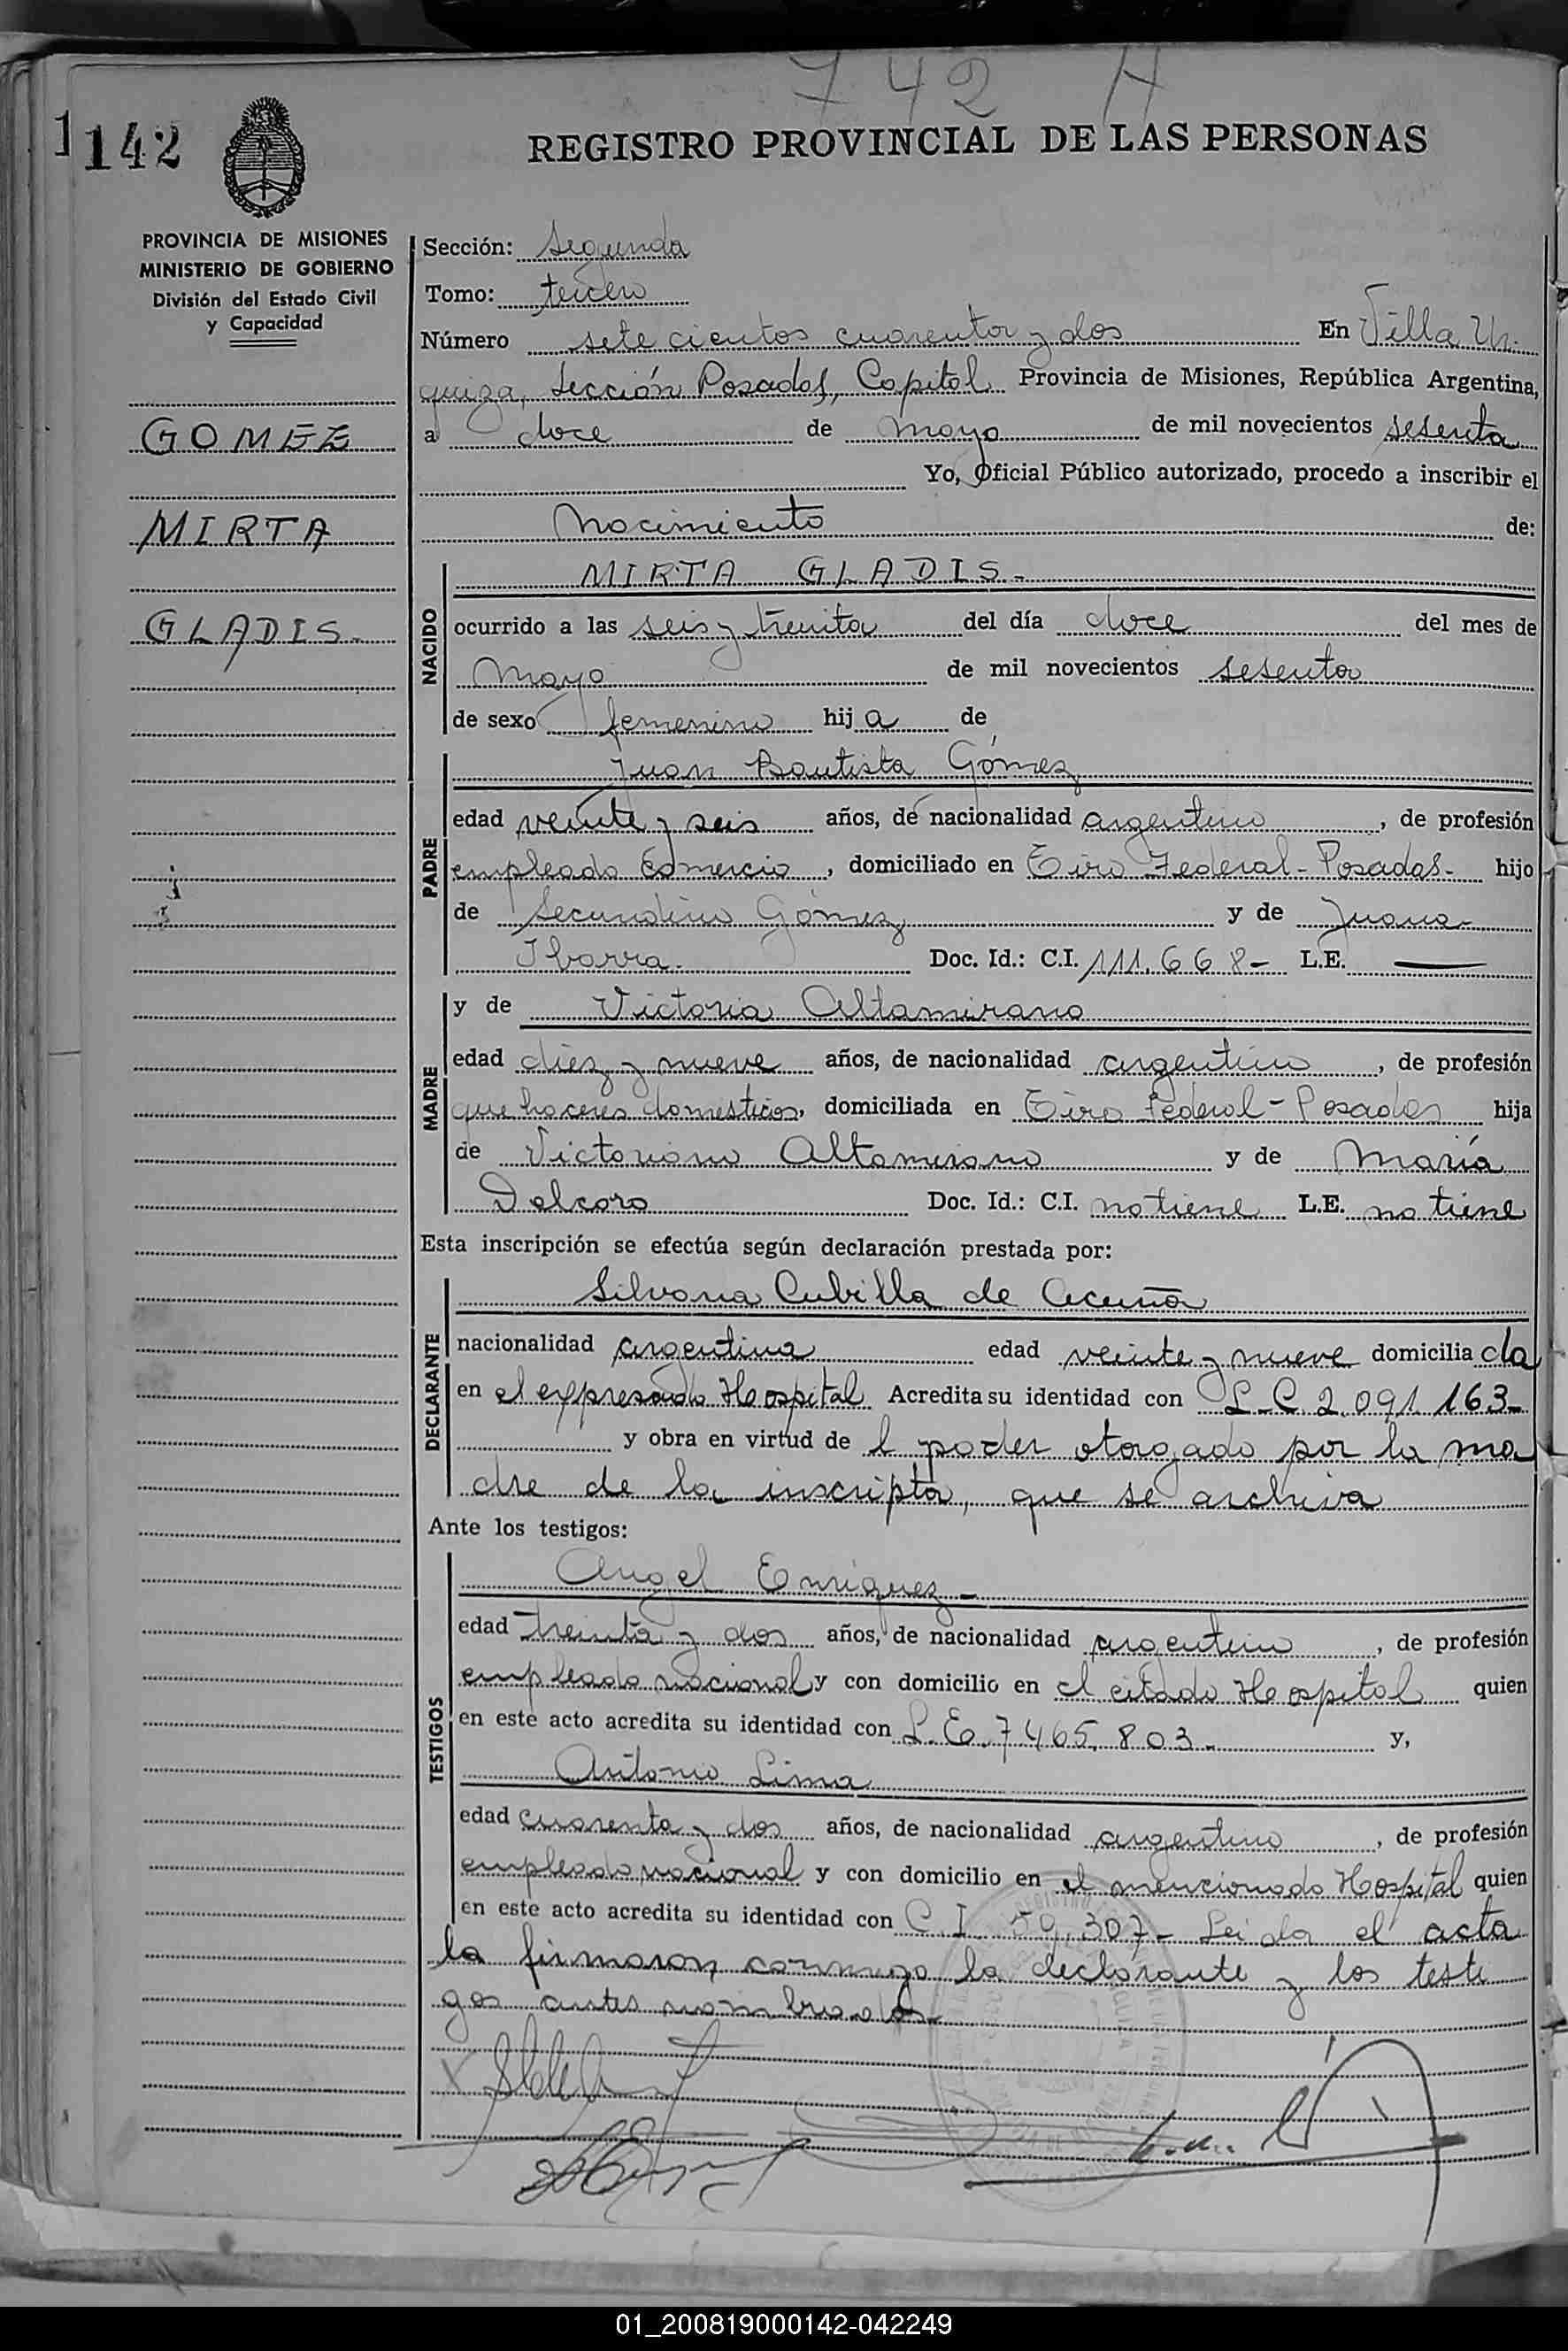 742 A
1142
REGISTRO PROVINCIAL DE LAS PERSONAS
PROVINCIA DE MISIONES
MINISTERIO DE GOBIERNO
División del Estado Civil
y Capacidad
GOMEZ
MIRTA
GLADIS.-
Sección: Segunda
Tomo: tercero
Número sete cientos cuarenta y dos En Villa Ur-
quiza, Sección Posadas, Capital Provincia de Misiones, República Argentina,
a doce de mayo de mil novecientos sesenta
Yo, Oficial Público autorizado, procedo a inscribir el
Nacimiento de:
NACIDO
MIRTA GLADIS.-
ocurrido a las seis y treinta del día doce del mes de
Mayo de mil novecientos sesenta
de sexo femenino hija de
PADRE
Juan Bautista Gómez
edad veinte y seis años, de nacionalidad argentino, de profesión
empleado comercio, domiciliado en Tiro Federal - Posadas- hijo
de Secundino Gómez y de Juana
Ibarra.- Doc. Id.: C.I. 111.668- L.E. —
MADRE
y de Victoria Altamirano
edad diez y nueve años, de nacionalidad argentino, de profesión
quehaceres domesticos, domiciliada en Tiro Federal - Posadas hija
de Victoriano Altamirano y de María
Delcoro Doc. Id.: C.I. no tiene L.E. no tiene
Esta inscripción se efectúa según declaración prestada por:
DECLARANTE
Silvana Cubilla de Acuña
nacionalidad argentina edad veinte y nueve domiciliada
en el expresado Hospital Acredita su identidad con L.C. 2.091.163-
y obra en virtud de l poder otorgado por la ma
dre de la inscripta, que se archiva
Ante los testigos:
TESTIGOS
Angel Enriquez-
edad treinta y dos años, de nacionalidad argentino, de profesión
empleado nacional y con domicilio en el citado Hospital quien
en este acto acredita su identidad con L.E. 7465.803.- y,
Antonio Lima
edad cuarenta y dos años, de nacionalidad argentino, de profesión
empleado nacional y con domicilio en el mencionado Hospital quien
en este acto acredita su identidad con C.I. 59.307- Leida el acta
la firmaron conmigo la declarante y los testi
gos antes nombrados-
01_200819000142-042249